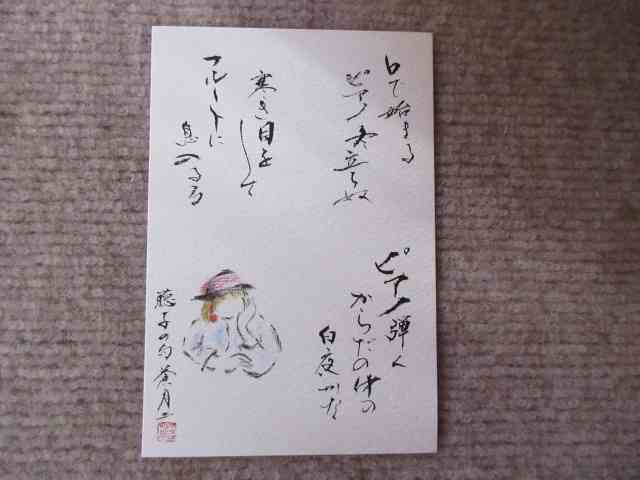 て始まる
ピアノ冬立ち奴
寒き日を
して
フルートに
息入るる
ピアノ弾く
からだの中の
白夜かな
子の句 月